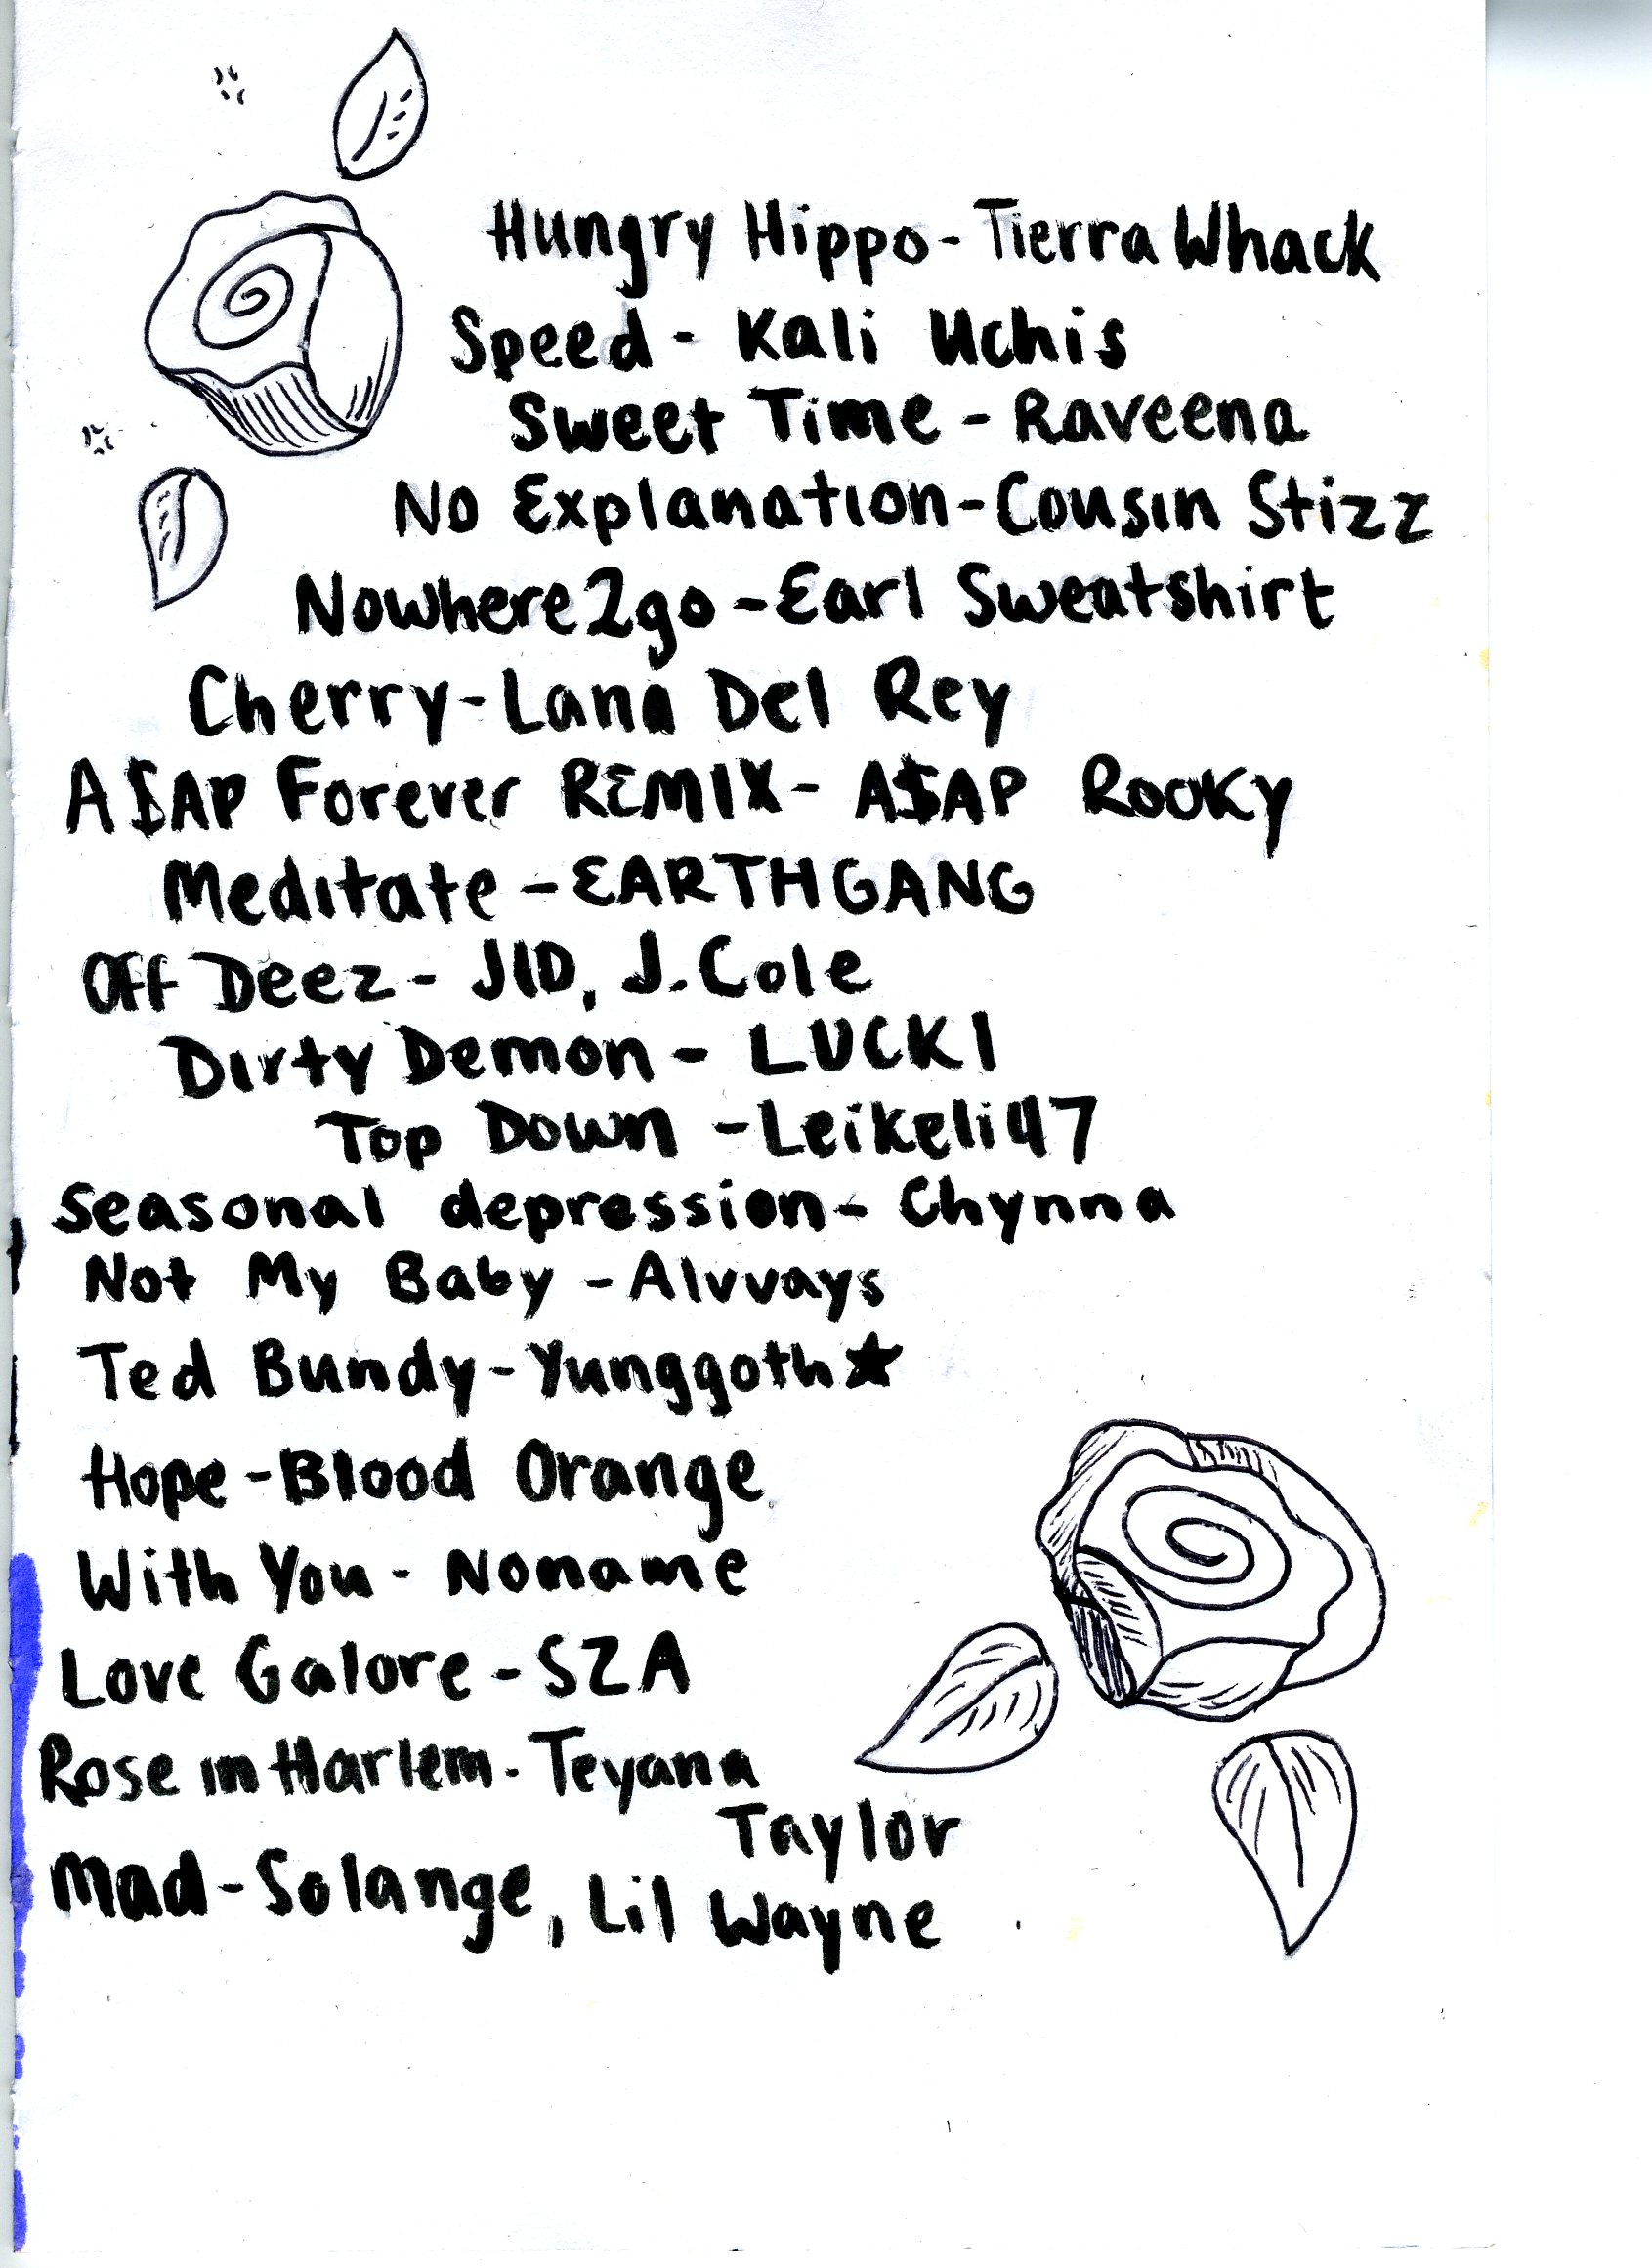 Hungry Hippo - Tierra Whack
Speed - Kali Uchis
Sweet Time - Raveena
No Explanation - Cousin Stizz
Nowhere2go - Earl Sweatshirt
Cherry - Lana Del Rey
A$AP Forever REMIX - A$AP ROOKY
Meditate - EARTHGANG
Off Deez - JID, J. Cole
Dirty Demon - LUCKI
Top Down - Leikeli47
Seasonal depression - Chynna
Not My Baby - Alvvays
Ted Bundy - Yunggoth★
Hope - Blood Orange
With You - Noname
Love Galore - SZA
Rose in Harlem - Teyana
Taylor
Mad - Solange, Lil Wayne